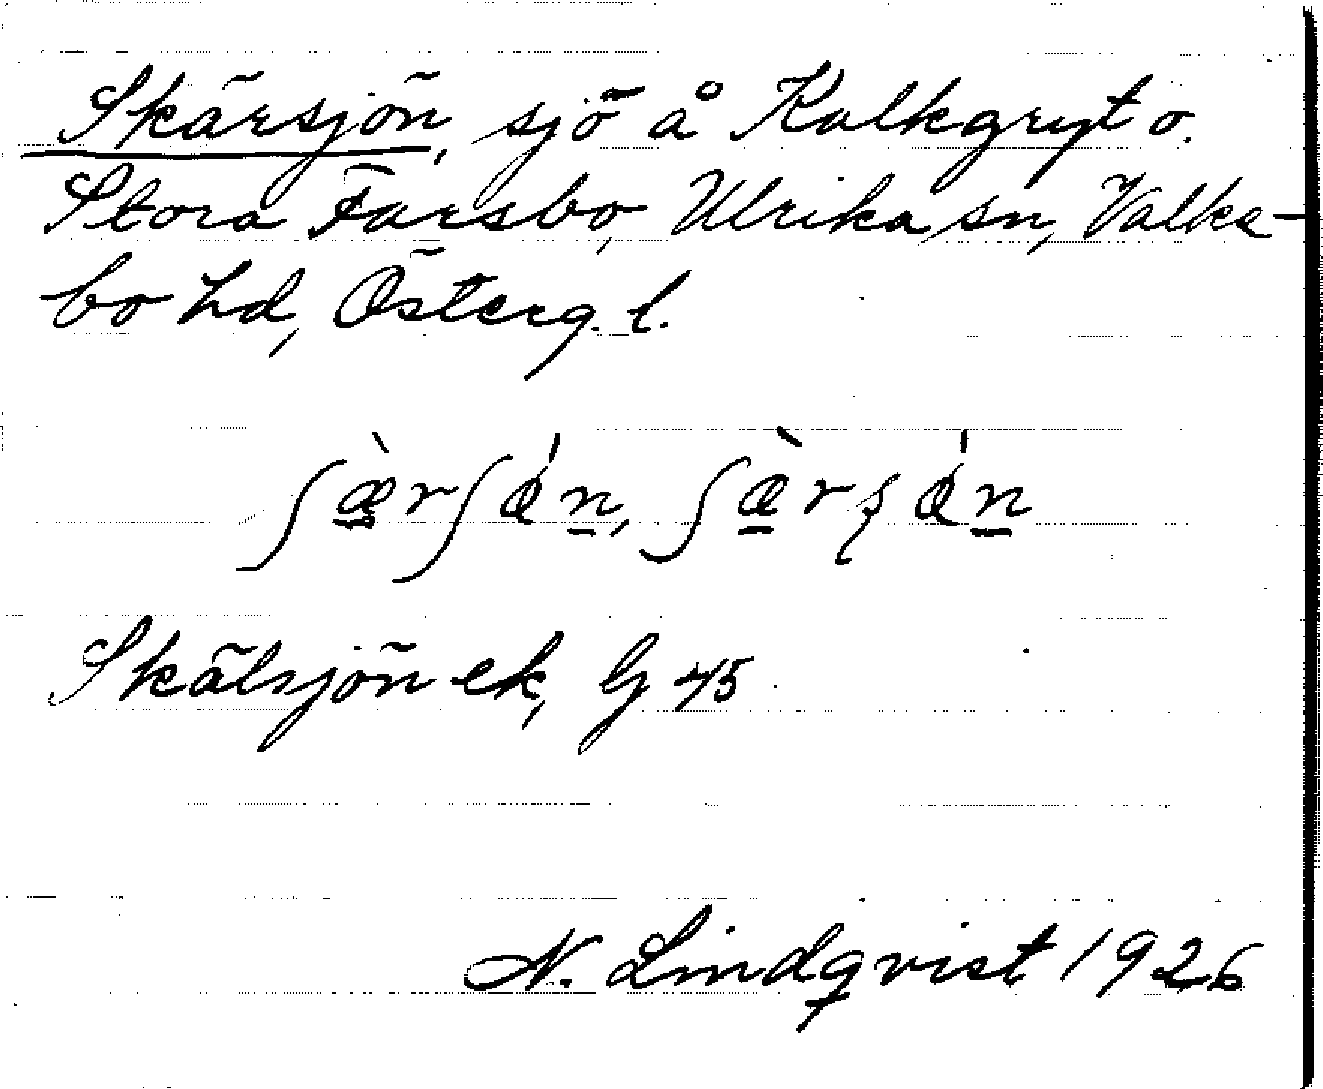 Skärsjön, sjö å Kalkgryt o.
Stora Farsbo, Ulrika sn, Valke-
bo hd, Österg. l.
Skälsjön ek, G 45
N. Lindqvist 1926